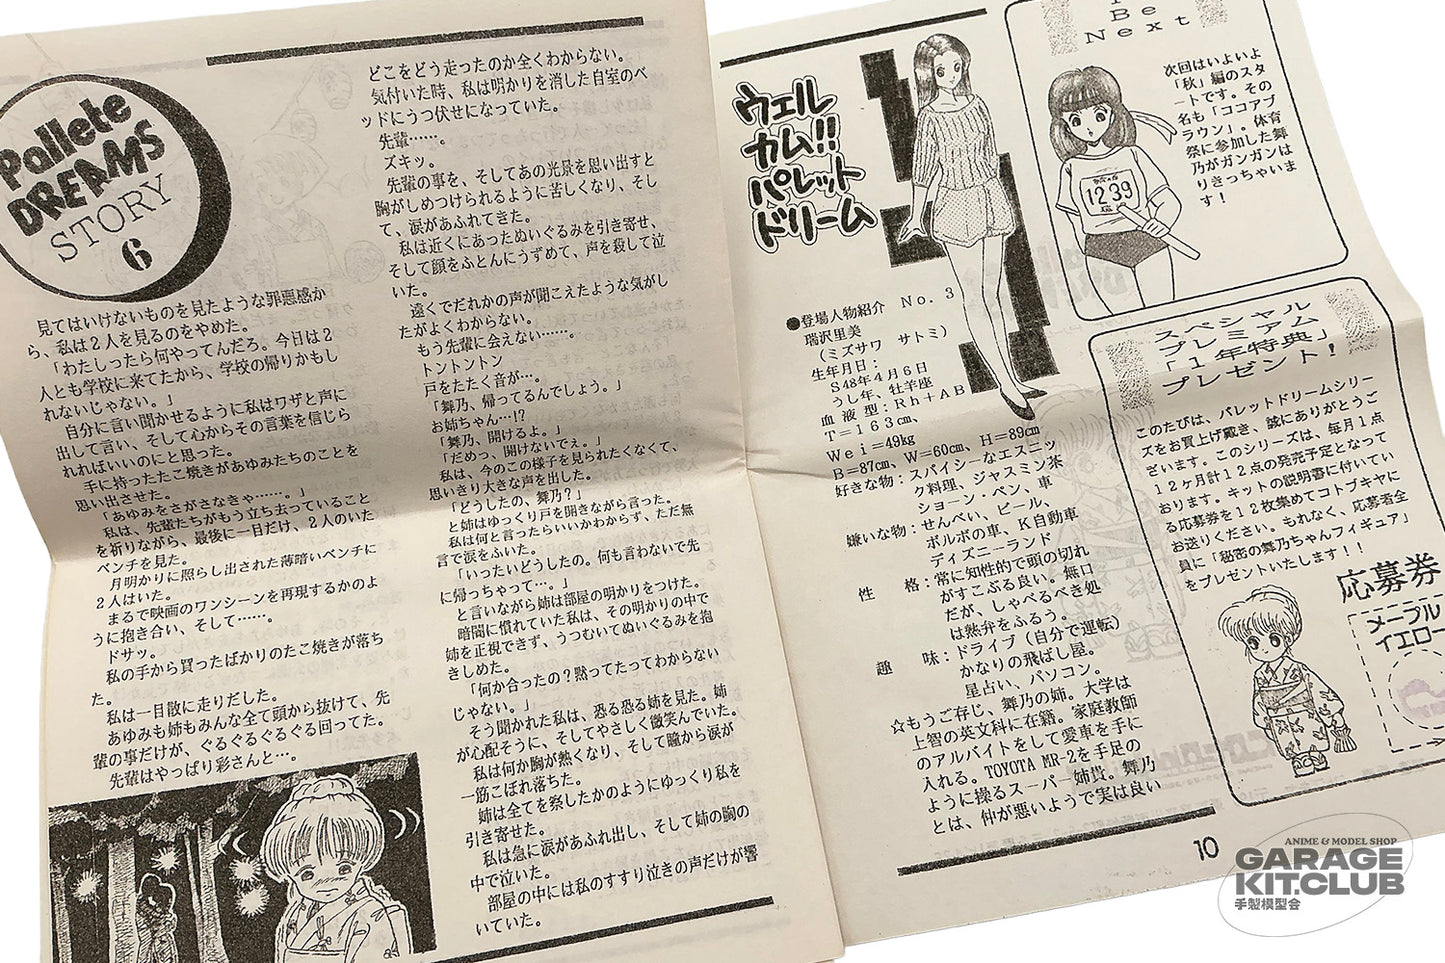 Pallete
DREAMS
STORY
6
見てはいけないものを見たような罪悪感か
ら、私は2人を見るのをやめた。
「わたしったら何やってんだろ。今日は2
人とも学校に来てたから、学校の帰りかもし
れないじゃない。」
自分に言い聞かせるように私はワザと声に
出して言い、そして心からその言葉を信じら
れればいいのにと思った。
手に持ったたこ焼きがあゆみたちのことを
思い出させた。
「あゆみをさがさなきゃ……。」
私は、先輩たちがもう立ち去っていること
を祈りながら、最後に一目だけ、2人のいた
ベンチを見た。
月明かりに照らし出された薄暗いベンチに
2人はいた。
まるで映画のワンシーンを再現するかのよ
うに抱き合い、そして……。
ドサッ。
私の手から買ったばかりのたこ焼きが落ち
た。
私は一目散に走りだした。
あゆみも姉もみんな全て頭から抜けて、先
輩の事だけが、ぐるぐるぐるぐる回ってた。
先輩はやっぱり彩さんと…。
どこをどう走ったのか全くわからない。
気付いた時、私は明かりを消した自室のベ
ッドにうつ伏せになっていた。
先輩……。
ズキッ。
先輩の事を、そしてあの光景を思い出すと
胸がしめつけられるように苦しくなり、そし
て、涙があふれてきた。
私は近くにあったぬいぐるみを引き寄せ、
そして顔をふとんにうずめて、声を殺して泣
いた。
遠くでだれかの声が聞こえたような気がし
たがよくわからない。
もう先輩に会えない……。
トントントン
戸をたたく音が…。
「舞乃、帰ってるんでしょう。」
お姉ちゃん…!?
「舞乃、開けるよ。」
「だめっ、開けないでぇ。」
私は、今のこの様子を見られたくなくて、
思いきり大きな声を出した。
「どうしたの、舞乃？」
と姉はゆっくり戸を開きながら言った。
私は何と言ったらいいかわからず、ただ無
言で涙をふいた。
「いったいどうしたの。何も言わないで先
に帰っちゃって…。」
と言いながら姉は部屋の明かりをつけた。
暗闇に慣れていた私は、その明かりの中で
姉を正視できず、うつむいてぬいぐるみを抱
きしめた。
「何か合ったの？黙ってたってわからない
じゃない。」
そう聞かれた私は、恐る恐る姉を見た。姉
が心配そうに、そしてやさしく微笑んでいた。
私は何か胸が熱くなり、そして瞳から涙が
一筋こぼれ落ちた。
姉は全てを察したかのようにゆっくり私を
引き寄せた。
私は急に涙があふれ出し、そして姉の胸の
中で泣いた。
部屋の中には私のすすり泣きの声だけが響
いていた。
ウェル
カム!!
パレット
ドリーム
●登場人物紹介 No.3
瑞沢里美
（ミズサワ サトミ）
生年月日：
S48年4月6日
うし年、牡羊座
血液型：Rh+AB
T=163cm、
Wei=49kg
B=87cm、W=60cm、H=89cm
好きな物：スパイシーなエスニッ
ク料理、ジャスミン茶
ション・ペン、車
嫌いな物：せんべい、ビール、
ボルボの車、K自動車
ディズニーランド
性 格：常に知性的で頭の切れ
がすこぶる良い。無口
だが、しゃべるべき処
は熱弁をふるう。
趣 味：ドライブ（自分で運転）
かなりの飛ばし屋。
星占い、パソコン。
☆もうご存じ、舞乃の姉。大学は
上智の英文科に在籍。家庭教師
のアルバイトをして愛車を手に
入れる。TOYOTA MR-2を手足の
ように操るスーパー姉貴。舞乃
とは、仲が悪いようで実は良い
10
Be
Next
次回はいよいよ
「秋」編のスタ
ートです。その
名も「ココアブ
ラウン」。体育
祭に参加した舞
乃がガンガンは
りきっちゃいま
す！
1239
スペシャル
プレミアム
「1年特典」
プレゼント！
このたびは、パレットドリームシリー
ズをお買上げ戴き、誠にありがとうご
ざいます。このシリーズは、毎月1点
12ヶ月計12点の発売予定となって
おります。キットの説明書に付いてい
る応募券を12枚集めてコトブキヤに
お送りください。もれなく、応募者全
員に「秘密の舞乃ちゃんフィギュア」
をプレゼントいたします！！
応募券
メープル
イエロー
ANIME & MODEL SHOP
GARAGE
KIT.CLUB
手製模型会